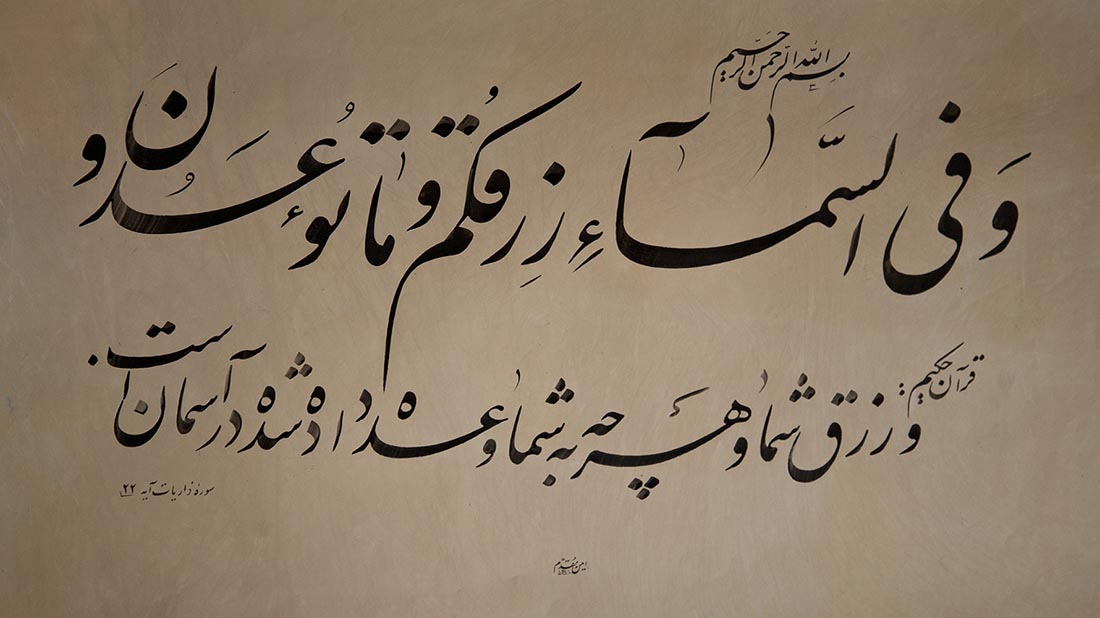 بسم الله الرحمن الرحیم
وَفی السَّمآءِ رِزقُکُم وَ ما تُوعَدُونَ
قرآن حکیم:
و رزق شما و هر چه به شما وعده داده شده در آسمان است.
سورهٔ ذاریات آیه ۲۲
امین مقدم